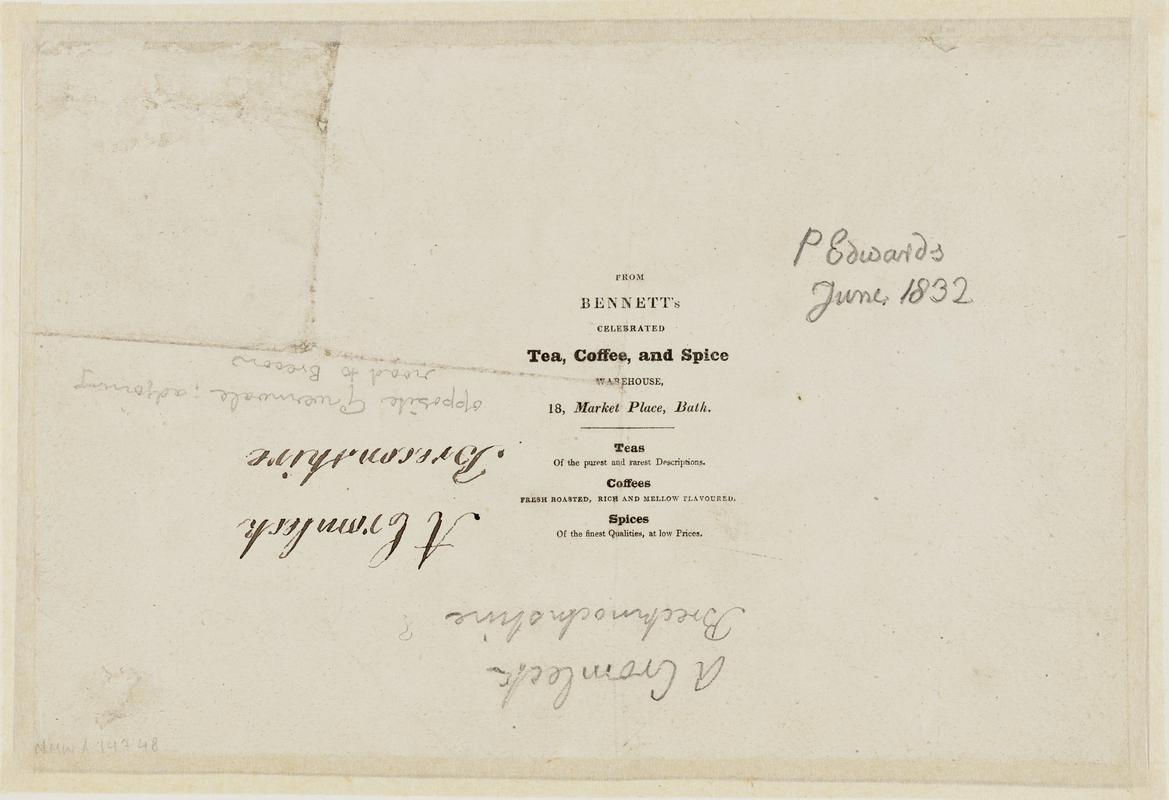 P Edwards
June. 1832
FROM
BENNETT's
CELEBRATED
Tea, Coffee, and Spice
WAREHOUSE,
18, Market Place, Bath.
Teas
Of the purest and rarest Descriptions.
Coffees
FRESH ROASTED, RICH AND MELLOW FLAVOURED.
Spices
Of the finest Qualities, at low Prices.
A Cromlech
Brecknockshire ?
A Cromlech
Breconshire
opposite Gwernvale ; adjoining
road to Brecon
14748